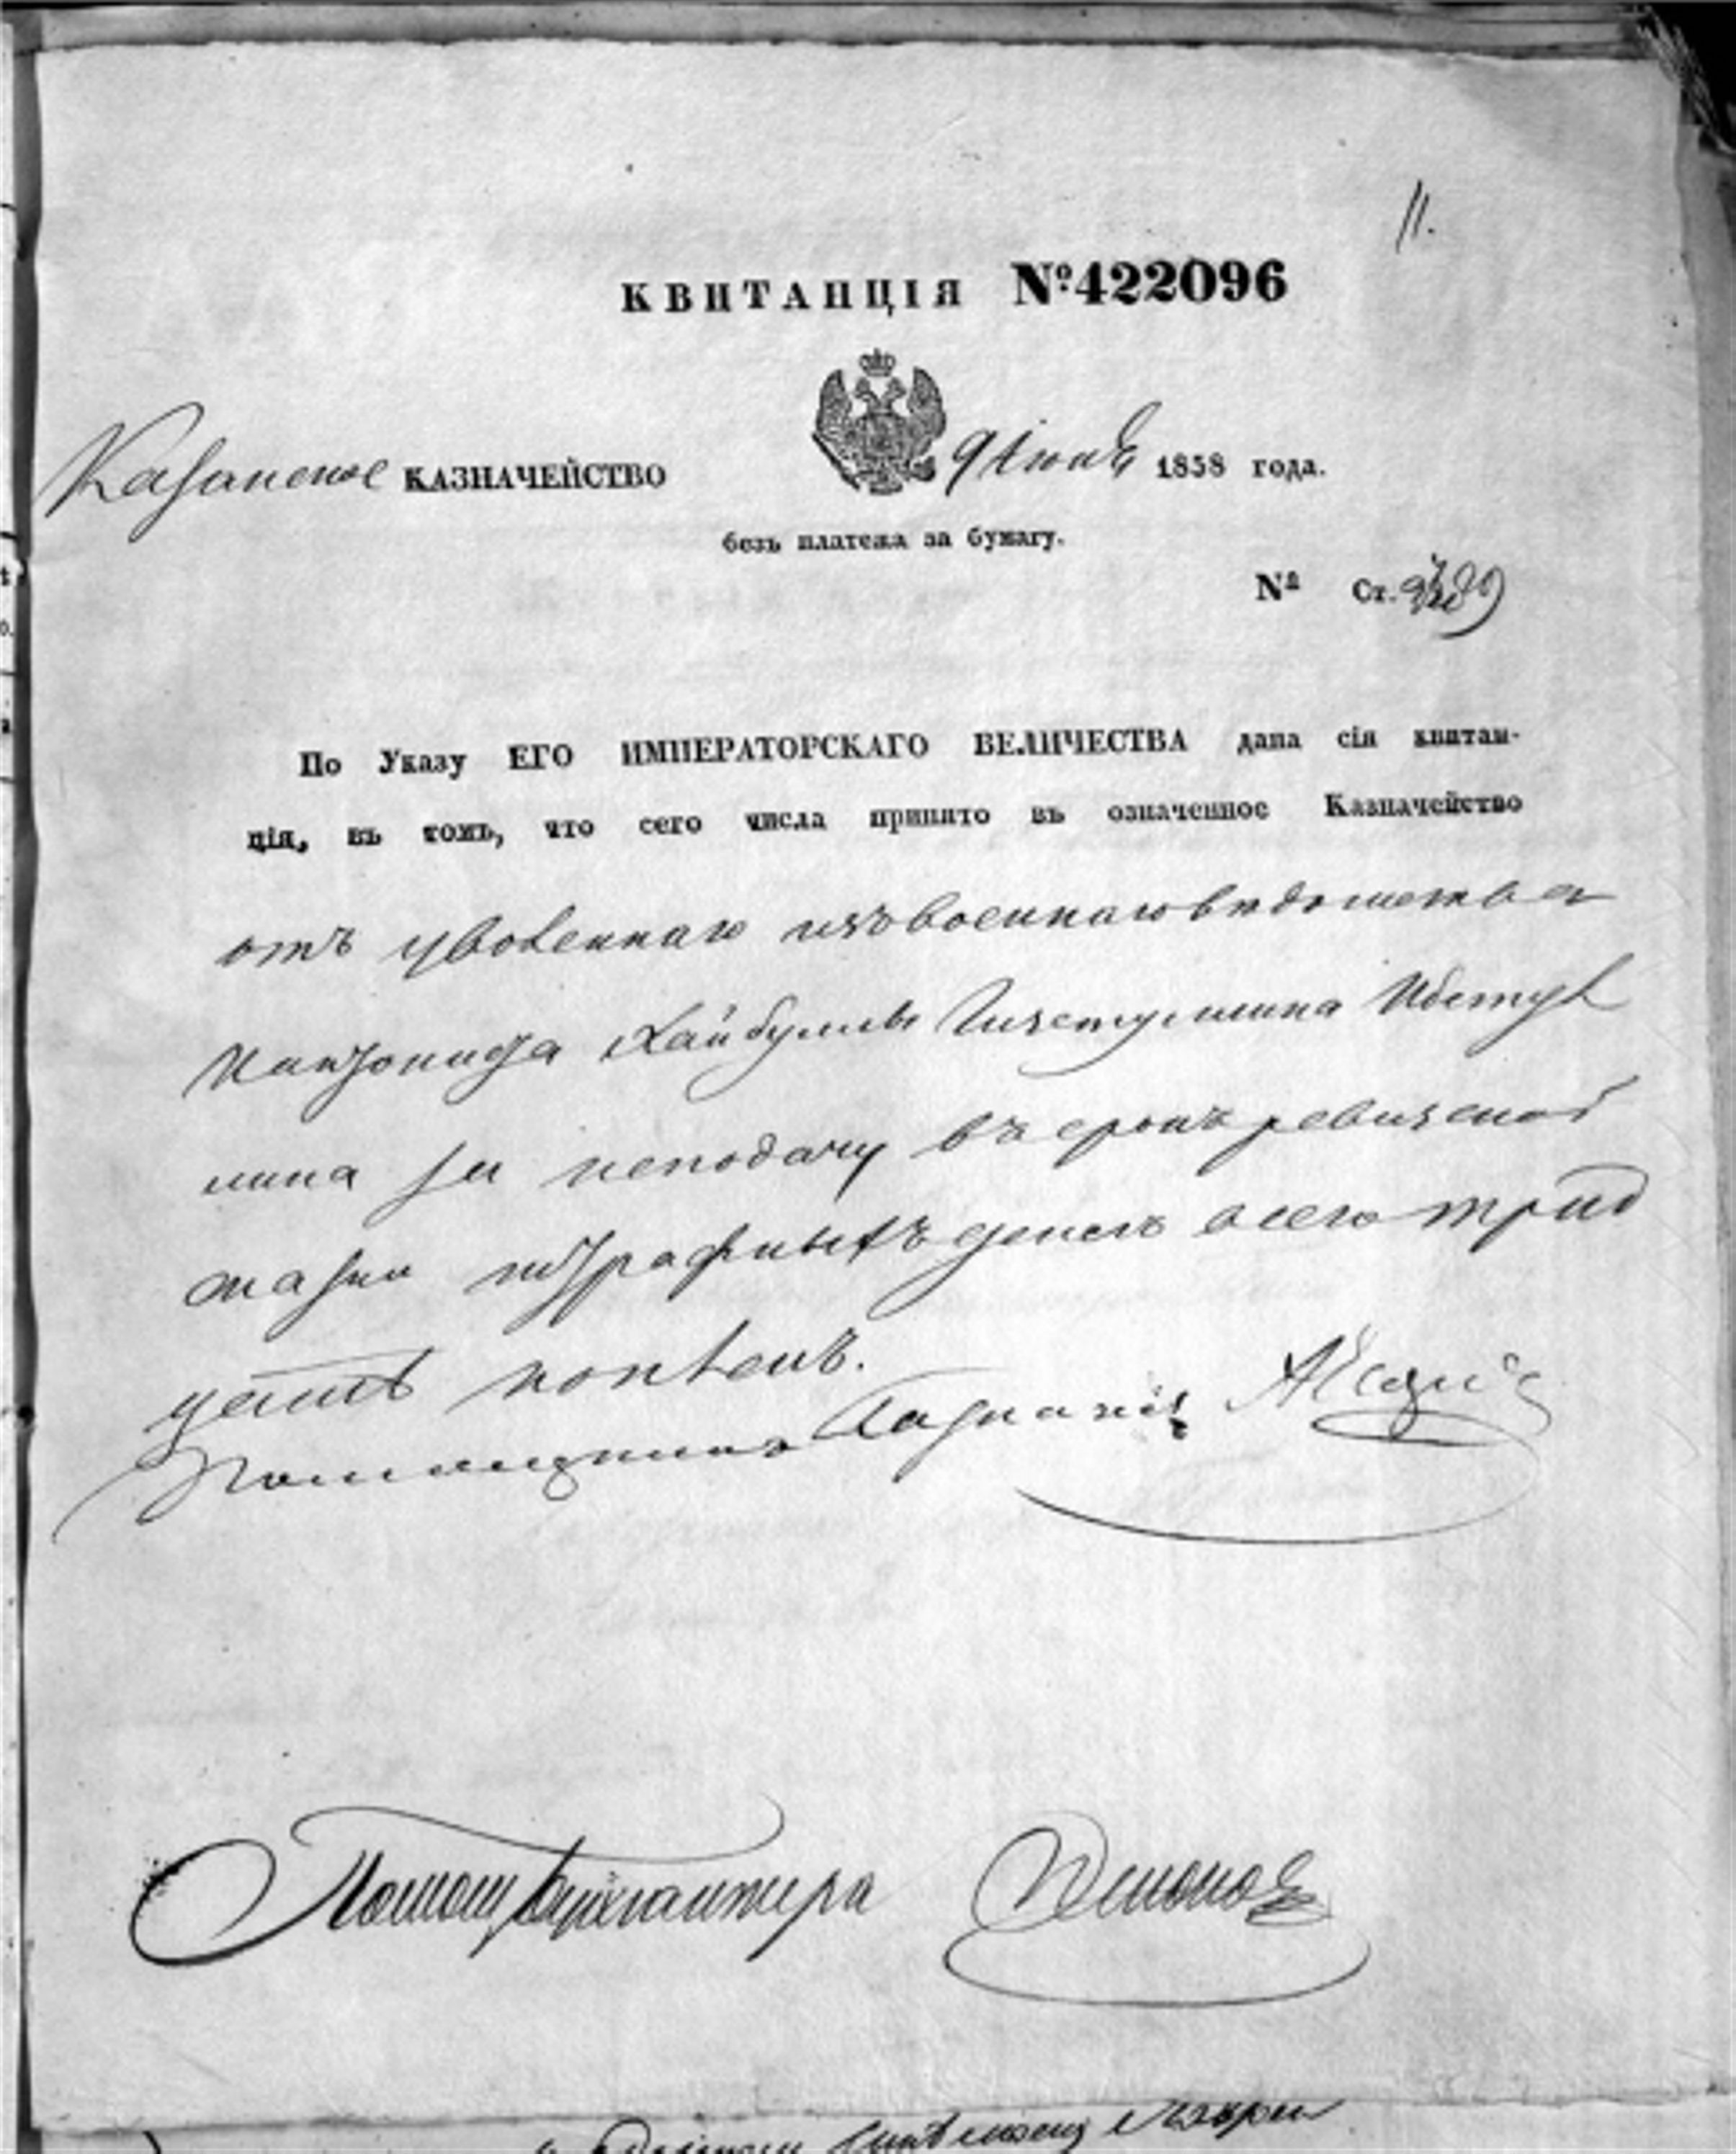 11.
КВИТАНЦІЯ №422096
Казанское КАЗНАЧЕЙСТВО 9 Іюня 1858 года.
безъ платежа за бумагу.
№ Ст.
По Указу ЕГО ИМПЕРАТОРСКАГО ВЕЛИЧЕСТВА дана сія квитан-
ція, въ томъ, что сего числа принято въ означенное Казначейство
отъ уволеннаго изъ военнаго ведомства
Кантониста Хайбуллы
мина за неподачу въ срокъ ревизской
сказки штрафныхъ денегъ всего трид
цать копѣекъ.
Помощникъ Казначея
Помощ Бухгалтера